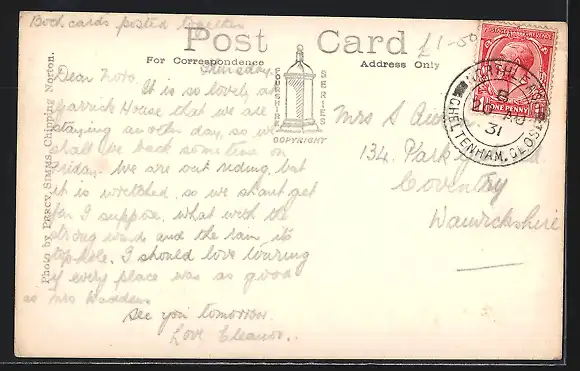 Both cards posted together
Post Card
£1-50
For Correspondence
Address Only
FOURSHIRE
SERIES
COPYRIGHT
Photo by PERCY SIMMS, Chipping Norton.
Thursday.
Dear
It is so lovely at
Garrick House that we are
staying another day, so we
shall be back sometime on
Friday. We are out riding, but
it is wretched so we shant get
far I suppose, what with the
strong wind and the rain, its
top-hole. I should love touring
if every place was as good
as Mrs
See you tomorrow.
Love Eleanor.
Mrs S
134,
Coventry
Warwickshire
ONE PENNY
NORTHLEACH
8
20 AU
31
CHELTENHAM, GLOS.